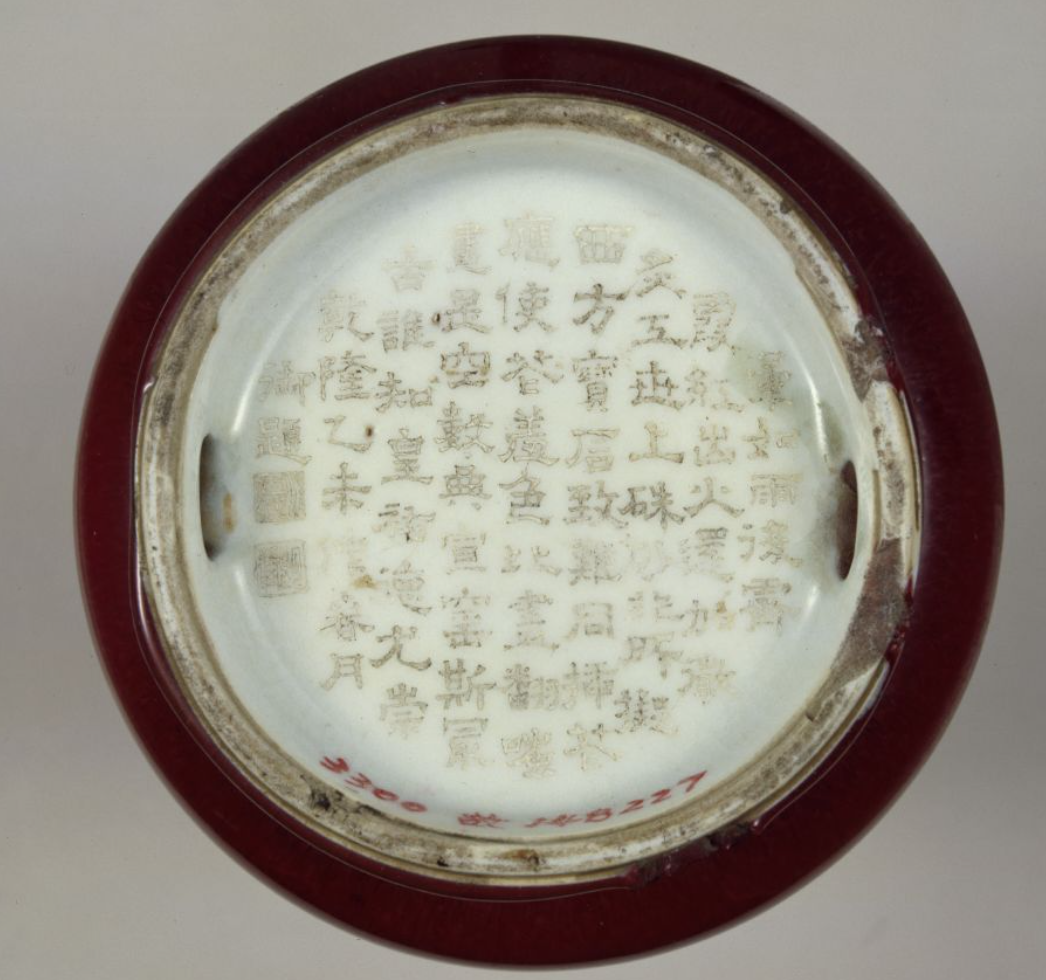 暈如雨後霽
霞紅出火還加微
炙工世上硃砂非所擬
西方寶石致難同插花
應使花羞色比畫翻嗤
畫是空數典宣窑斯最
古誰知皇祐德尤崇
乾隆乙未仲春月
御題
3300 148227